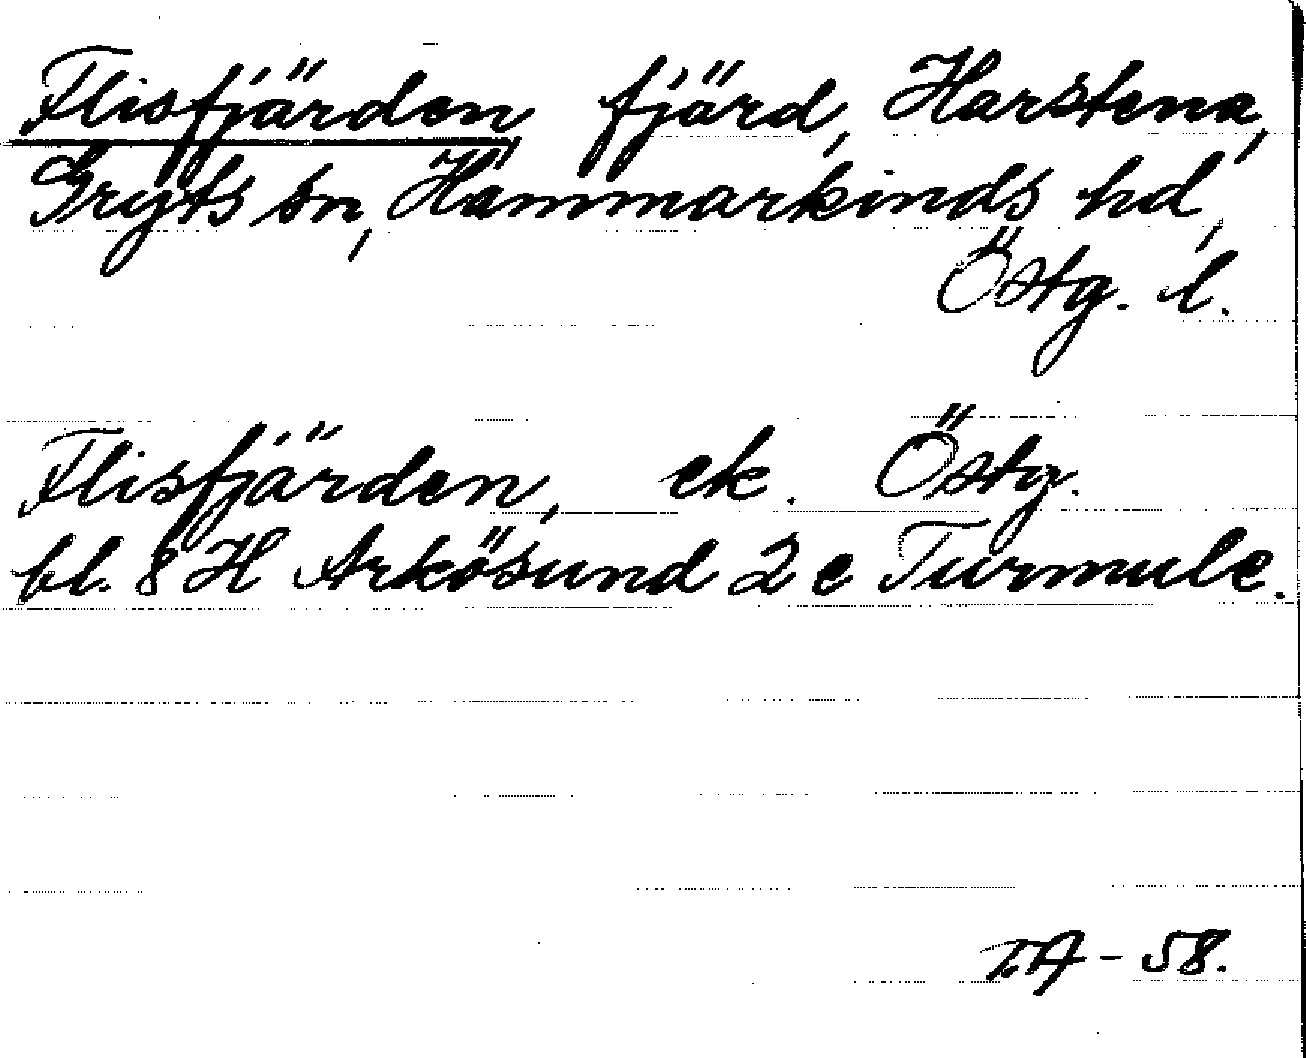 Flisfjärden, fjärd, Harstena,
Gryts sn, Hammarkinds hd,
Östg. l.
Flisfjärden, ek. Östg.
bl. 8 H Arkösund 2 e Turmule.
T.A - 58.